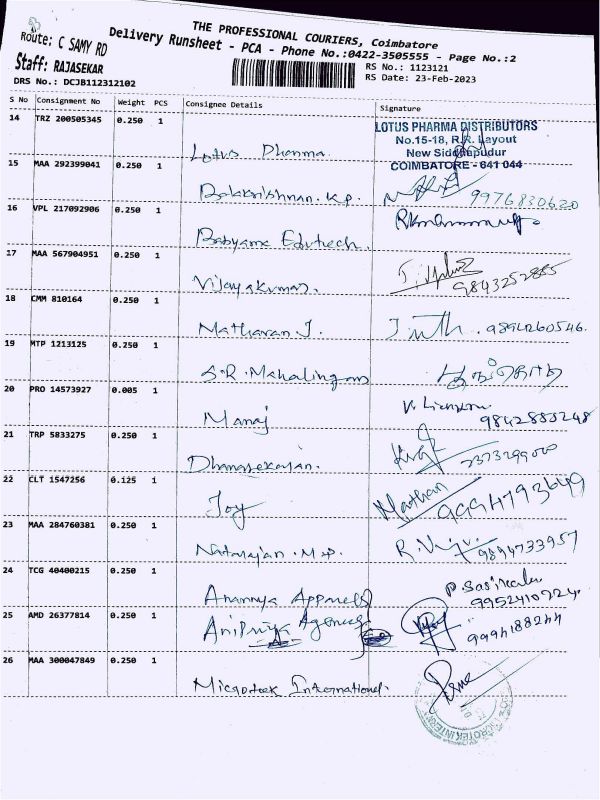 THE PROFESSIONAL COURIERS, Coimbatore
Route: C SAMY RD
Delivery Runsheet - PCA - Phone No.:0422-3505555 - Page No.:2
Staff: RAJASEKAR
RS No.: 1123121
DRS No.: DCJB112312102
RS Date: 23-Feb-2023
S No Consignment No Weight PCS Consignee Details Signature
14 TRZ 200505345 0.250 1
LOTUS PHARMA DISTRIBUTORS
No.15-18, R.R. Layout
New Siddhapudur
COIMBATORE - 641 044
Lotus Pharma
15 MAA 292399041 0.250 1
Balakrishnan. K.P. 9976830620
16 VPL 217092906 0.250 1
Babyama Edutech.
17 MAA 567904951 0.250 1
Vijayakumar. 9843252885
18 CMM 810164 0.250 1
Matharan J. 9894260546.
19 MTP 1213125 0.250 1
S.R. Mahalingam
20 PRO 14573927 0.005 1
Manoj 9842883248
21 TRP 5833275 0.250 1
Dhanasekaran. 2373299000
22 CLT 1547256 0.125 1
Joy Mathan 9994793649
23 MAA 284760381 0.250 1
Natarajan. M.P. 9894733957
24 TCG 40400215 0.250 1
Anannya Apparels P. Sasi 9952410724
25 AMD 26377814 0.250 1
Anipriya Agency 9994188244
26 MAA 300047849 0.250 1
Microteek International.